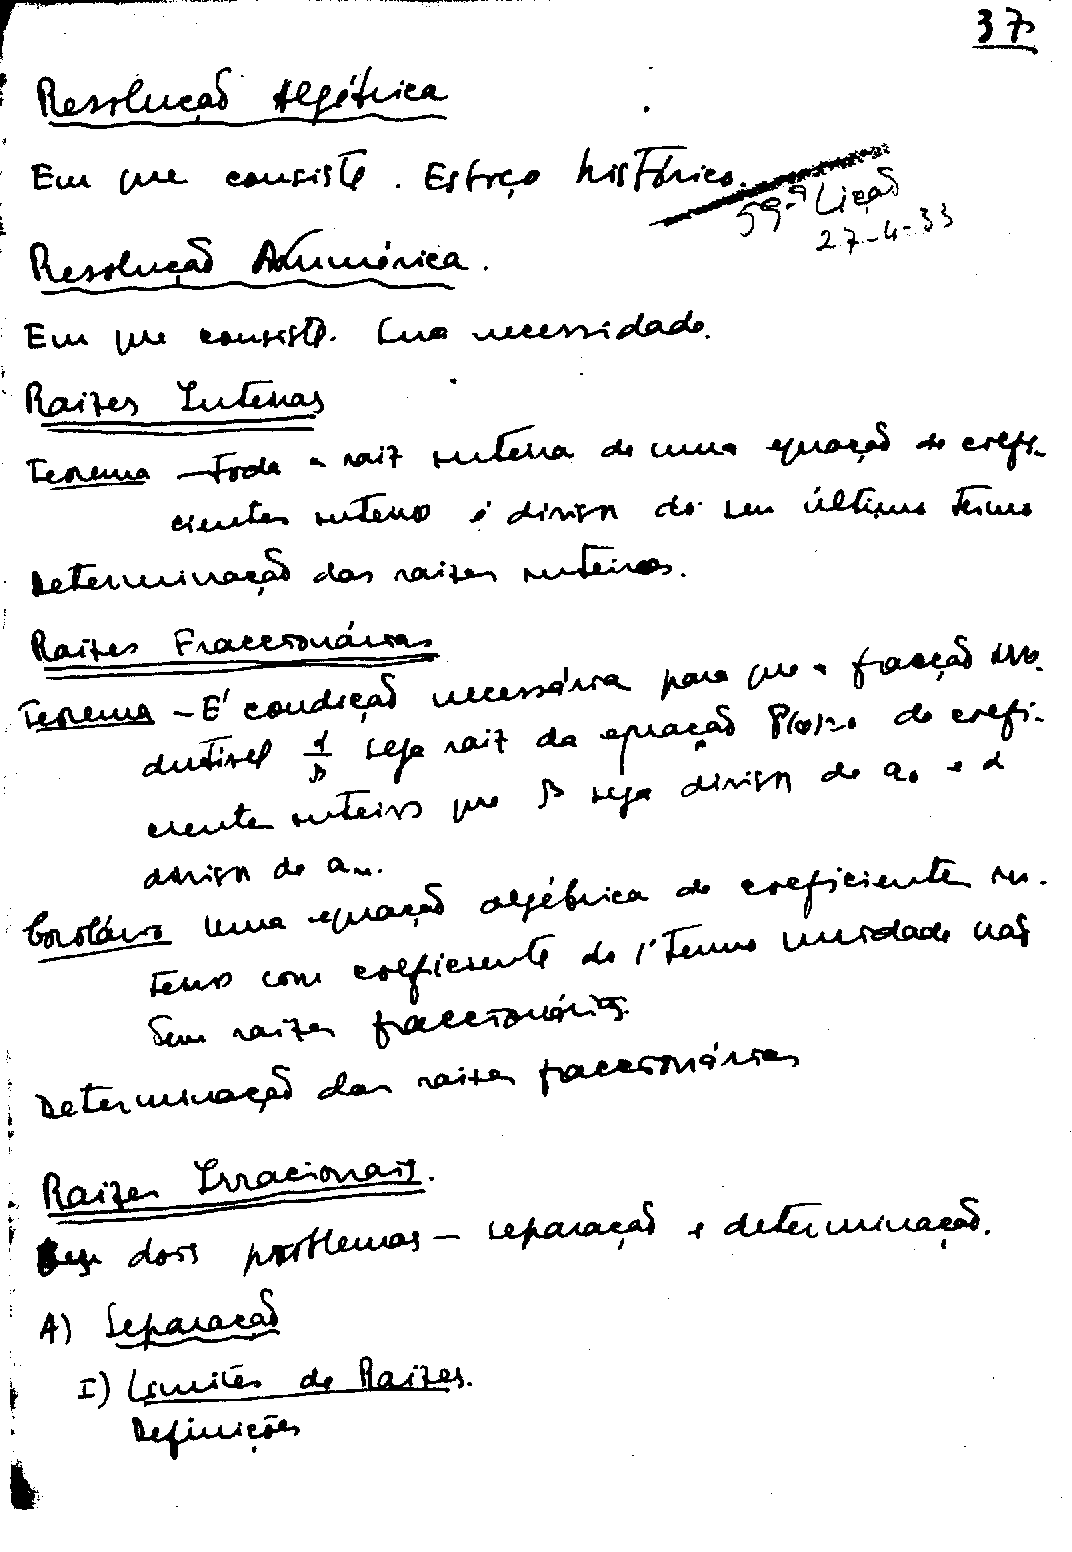 37
Resolução Algébrica
Em que consiste. Esboço histórico.
59.ª Lição
27-4-33
Resolução Numérica.
Em que consiste. Sua necessidade.
Raizes Inteiras
Teorema — Toda a raiz inteira de uma equação de coefi-
cientes inteiros é divisor do seu último termo
Determinação das raizes inteiras.
Raizes Fraccionárias
Teorema — É condição necessária para que a fracção irre-
dutivel α/β seja raiz da equação P(x)=0 de coefi-
ciente inteiros que β seja divisor de a₀ e α
divisor de aₙ.
Corolário Uma equação algébrica de coeficiente in-
teiros com coeficiente do 1º termo unidade não
tem raizes fraccionárias.
Determinação das raizes fraccionárias
Raizes Irracionais.
dois problemas — separação e determinação.
A) Separação
I) Limites de Raizes.
Definições